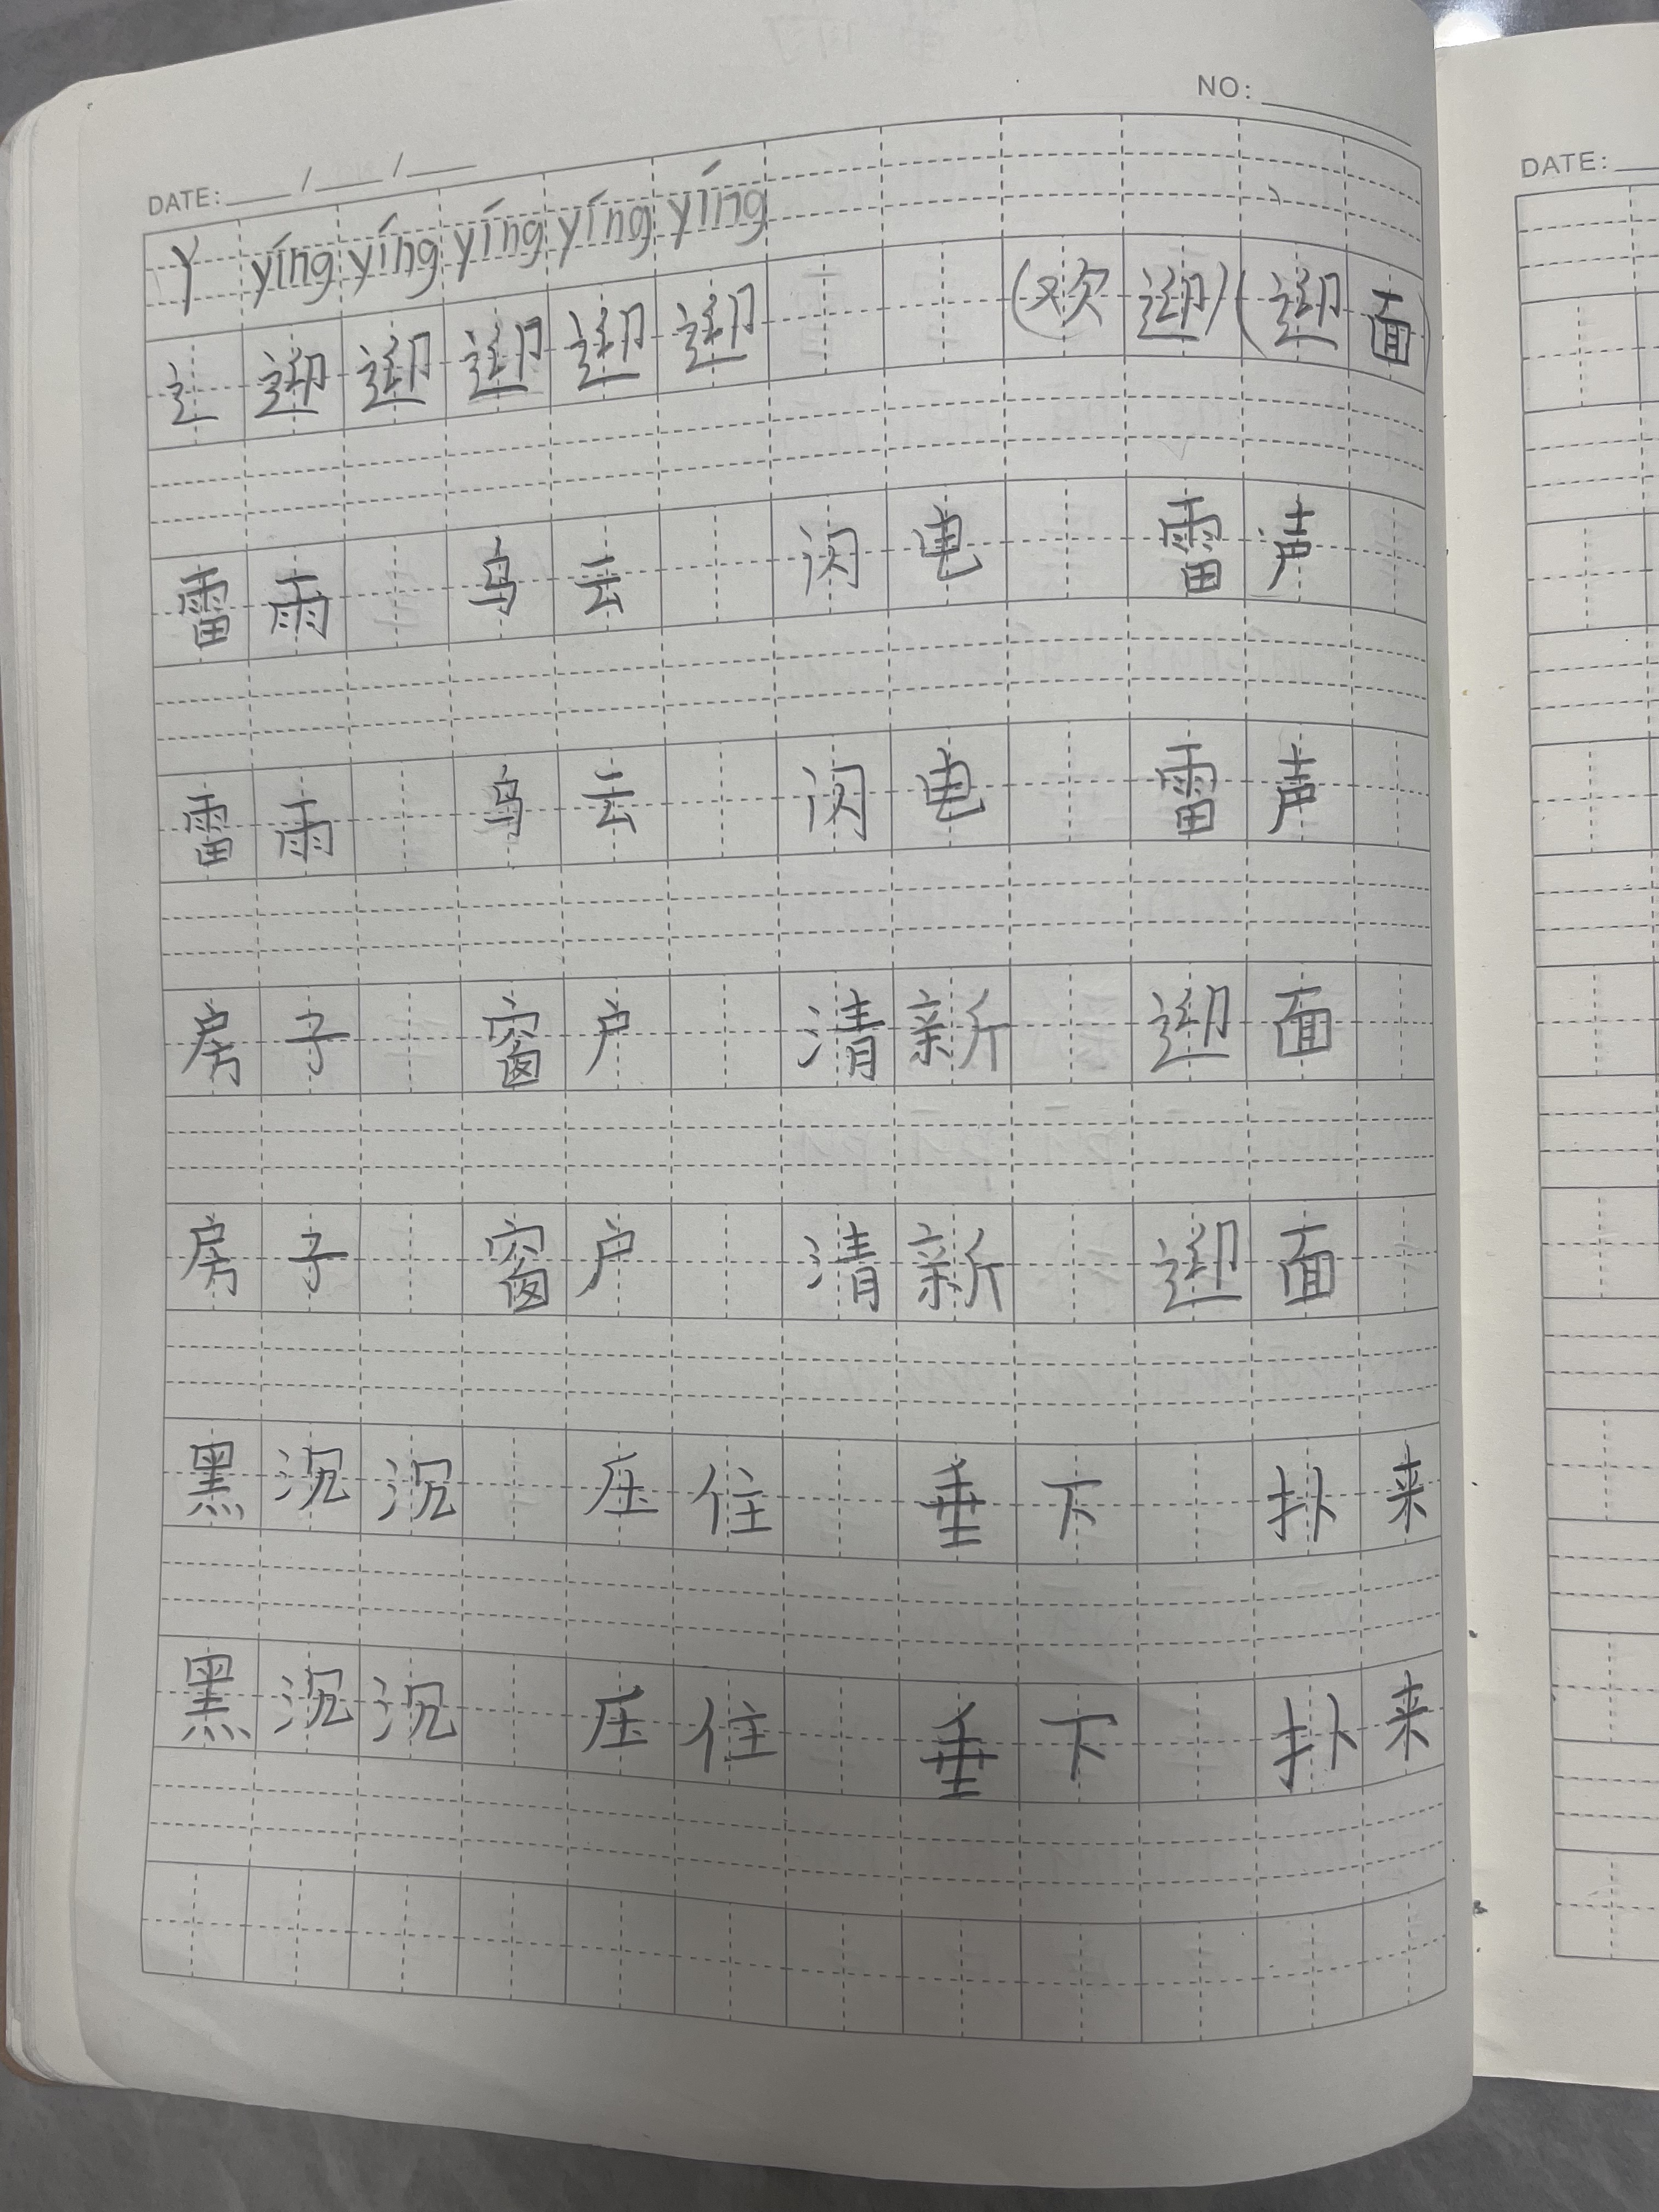 NO:
DATE: / /
DATE:
Y yíng yíng yíng yíng yíng
辶 迎 迎 迎 迎 迎 (欢迎) (迎面
雷雨 乌云 闪电 雷声
雷雨 乌云 闪电 雷声
房子 窗户 清新 迎面
房子 窗户 清新 迎面
黑沉沉 压住 垂下 扑来
黑沉沉 压住 垂下 扑来